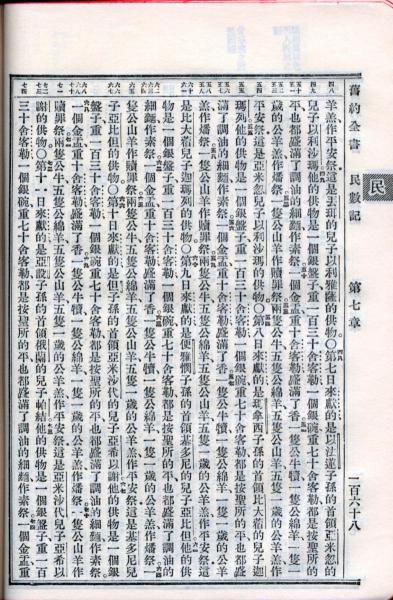 舊約全書 民數記 第七章 一百六十八
民
羊羔作平安祭這是丟珥的兒子以利雅薩的供物〇第七日來獻的是以法蓮子孫的首領亞米忽的
兒子以利沙瑪他的供物是一個銀盤子重一百三十舍客勒一個銀碗重七十舍客勒都是按聖所的
平也都盛滿了調油的細麵作素祭一個金盂重十舍客勒盛滿了香一隻公牛犢一隻公綿羊一隻一
歲的公羊羔作燔祭一隻公山羊作贖罪祭兩隻公牛五隻公綿羊五隻公山羊五隻一歲的公羊羔作
平安祭這是亞米忽兒子以利沙瑪的供物〇第八日來獻的是瑪拿西子孫的首領比大蓿的兒子迦
瑪列他的供物是一個銀盤子重一百三十舍客勒一個銀碗重七十舍客勒都是按聖所的平也都盛
滿了調油的細麵作素祭一個金盂重十舍客勒盛滿了香一隻公牛犢一隻公綿羊一隻一歲的公羊
羔作燔祭一隻公山羊作贖罪祭兩隻公牛五隻公綿羊五隻公山羊五隻一歲的公羊羔作平安祭這
是比大蓿兒子迦瑪列的供物〇第九日來獻的是便雅憫子孫的首領基多尼的兒子亞比但他的供
物是一個銀盤子重一百三十舍客勒一個銀碗重七十舍客勒都是按聖所的平也都盛滿了調油的
細麵作素祭一個金盂重十舍客勒盛滿了香一隻公牛犢一隻公綿羊一隻一歲的公羊羔作燔祭一
隻公山羊作贖罪祭兩隻公牛五隻公綿羊五隻公山羊五隻一歲的公羊羔作平安祭這是基多尼兒
子亞比但的供物〇第十日來獻的是但子孫的首領亞米沙代的兒子亞希以謝他的供物是一個銀
盤子重一百三十舍客勒一個銀碗重七十舍客勒都是按聖所的平也都盛滿了調油的細麵作素祭
一個金盂重十舍客勒盛滿了香一隻公牛犢一隻公綿羊一隻一歲的公羊羔作燔祭一隻公山羊作
贖罪祭兩隻公牛五隻公綿羊五隻公山羊五隻一歲的公羊羔作平安祭這是亞米沙代兒子亞希以
謝的供物〇第十一日來獻的是亞設子孫的首領俄蘭的兒子帕結他的供物是一個銀盤子重一百
三十舍客勒一個銀碗重七十舍客勒都是按聖所的平也都盛滿了調油的細麵作素祭一個金盂重